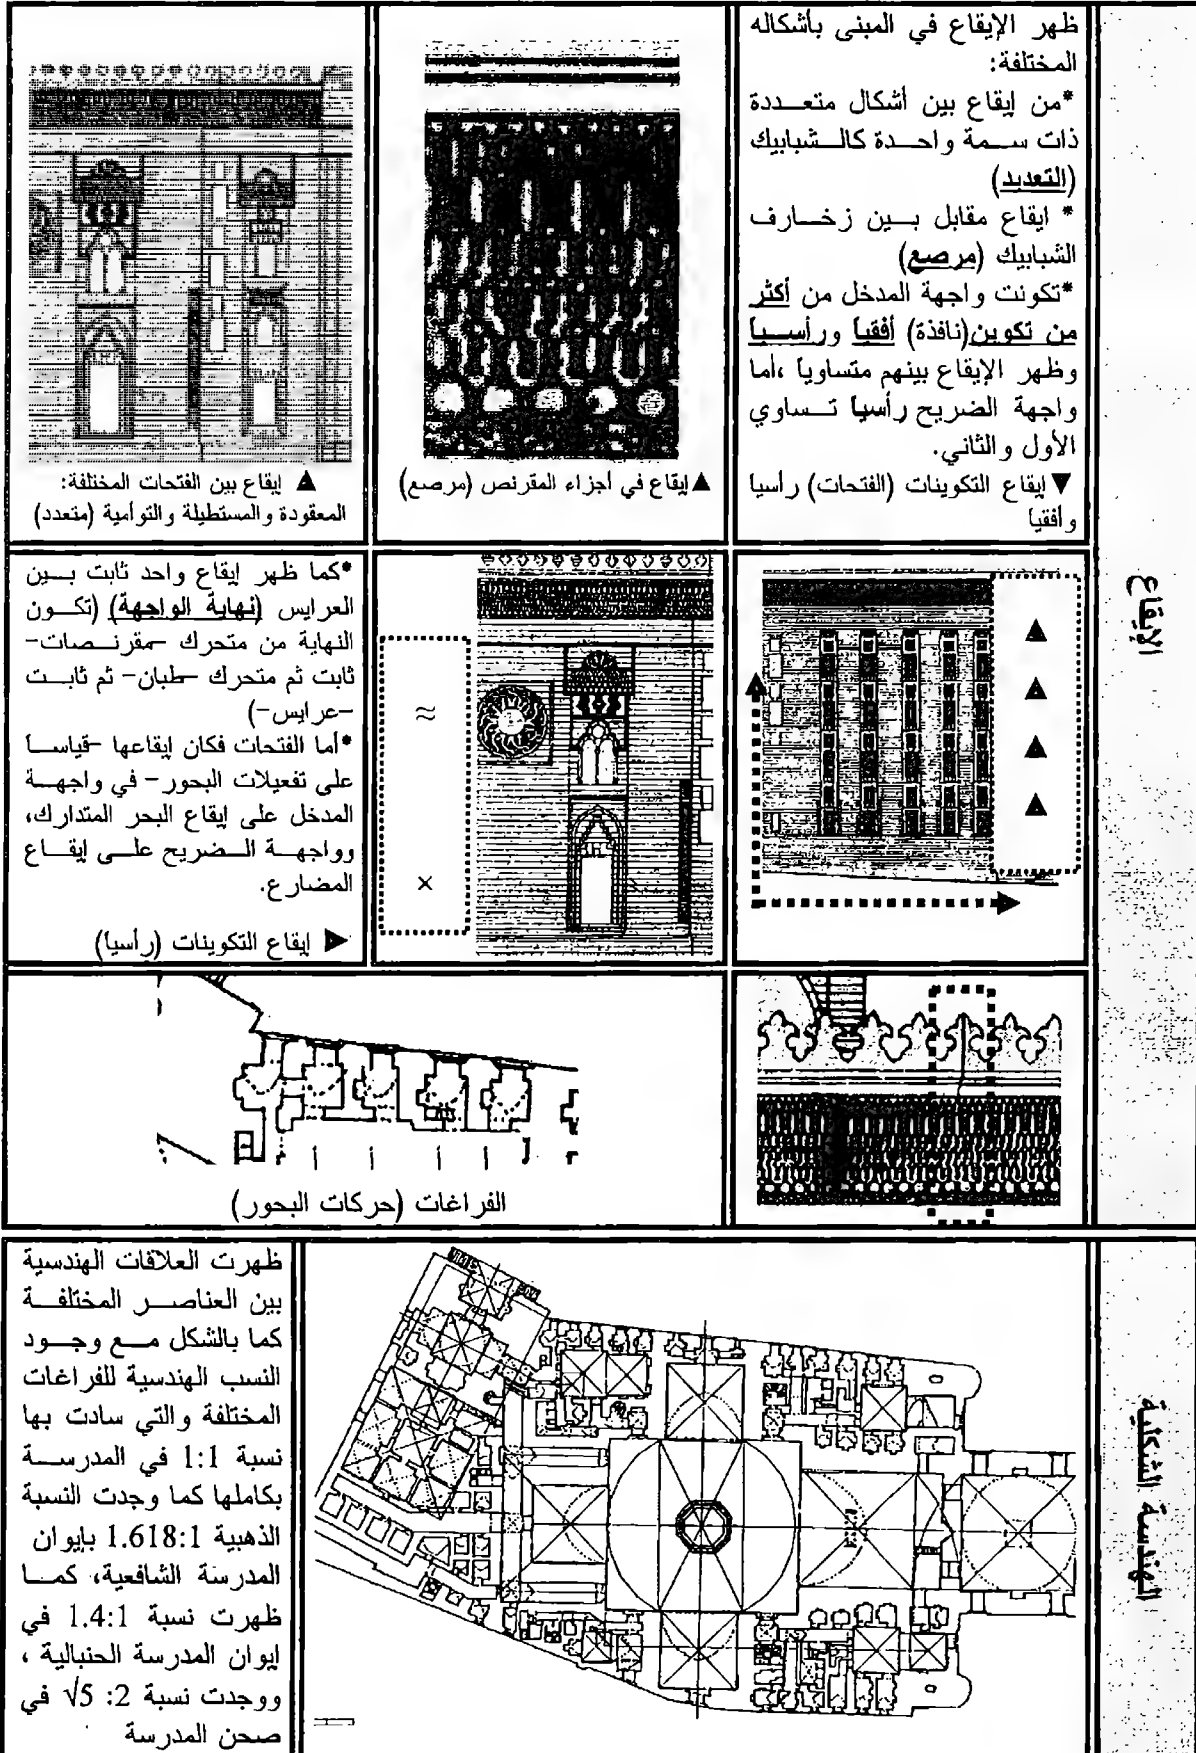 الإيقاع
ظهر الإيقاع في المبنى بأشكاله
المختلفة:
*من إيقاع بين أشكال متعـددة
ذات سـمة واحـدة كالـشبابيك
(التعديد)
* ايقاع مقابل بـين زخـارف
الشبابيك (مرصع)
*تكونت واجهة المدخل من أكثر
من تكوين(نافذة) أفقياً ورأسـياً
وظهر الإيقاع بينهم متساوياً ،أما
واجهة الضريح رأسياً تـساوي
الأول والثاني.
▼ إيقاع التكوينات (الفتحات) رأسيا
وأفقيا
▲إيقاع في أجزاء المقرنص (مرصع)
▲ إيقاع بين الفتحات المختلفة:
المعقودة والمستطيلة والتوأمية (متعدد)
▲
▲
▲
▲
≈
×
*كما ظهر إيقاع واحد ثابت بـين
العرايس (نهاية الواجهة) (تكـون
النهاية من متحرك -مقرنـصات-
ثابت ثم متحرك -طبان- ثم ثابـت
-عرايس-)
*أما الفتحات فكان إيقاعها -قياسـا
على تفعيلات البحور- في واجهـة
المدخل على إيقاع البحر المتدارك،
وواجهـة الـضريح علـى إيقـاع
المضارع.
◄ إيقاع التكوينات (رأسيا)
الفراغات (حركات البحور)
الهندسة الشكلية
ظهرت العلاقات الهندسية
بين العناصـر المختلفـة
كما بالشكل مـع وجـود
النسب الهندسية للفراغات
المختلفة والتي سادت بها
نسبة 1:1 في المدرسـة
بكاملها كما وجدت النسبة
الذهبية 1.618:1 بإيوان
المدرسة الشافعية، كمـا
ظهرت نسبة 1.4:1 في
إيوان المدرسة الحنبالية ،
ووجدت نسبة 2: 5√ في
صحن المدرسة